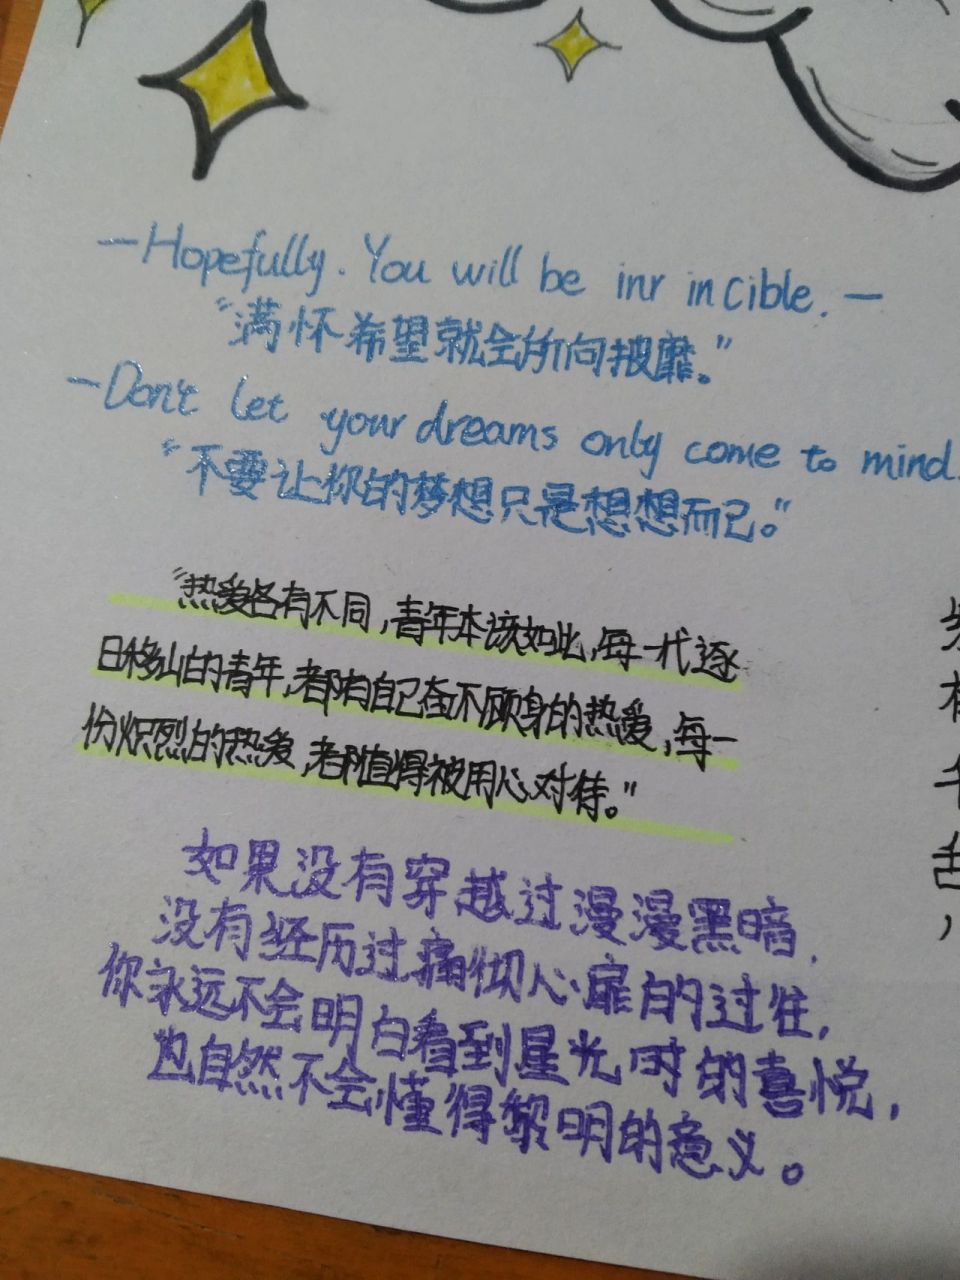 —Hopefully. You will be inr incible. —
“满怀希望就会所向披靡。”
—Don't let your dreams only come to mind.
“不要让你的梦想只是想想而已。”
“热爱各有不同,青年本该如此,每一代逐
日移山的青年,都有自己奋不顾身的热爱,每一
份炽烈的热爱,都值得被用心对待。”
如果没有穿越过漫漫黑暗,
没有经历过痛彻心扉的过往,
你永远不会明白看到星光时的喜悦,
也自然不会懂得黎明的意义。